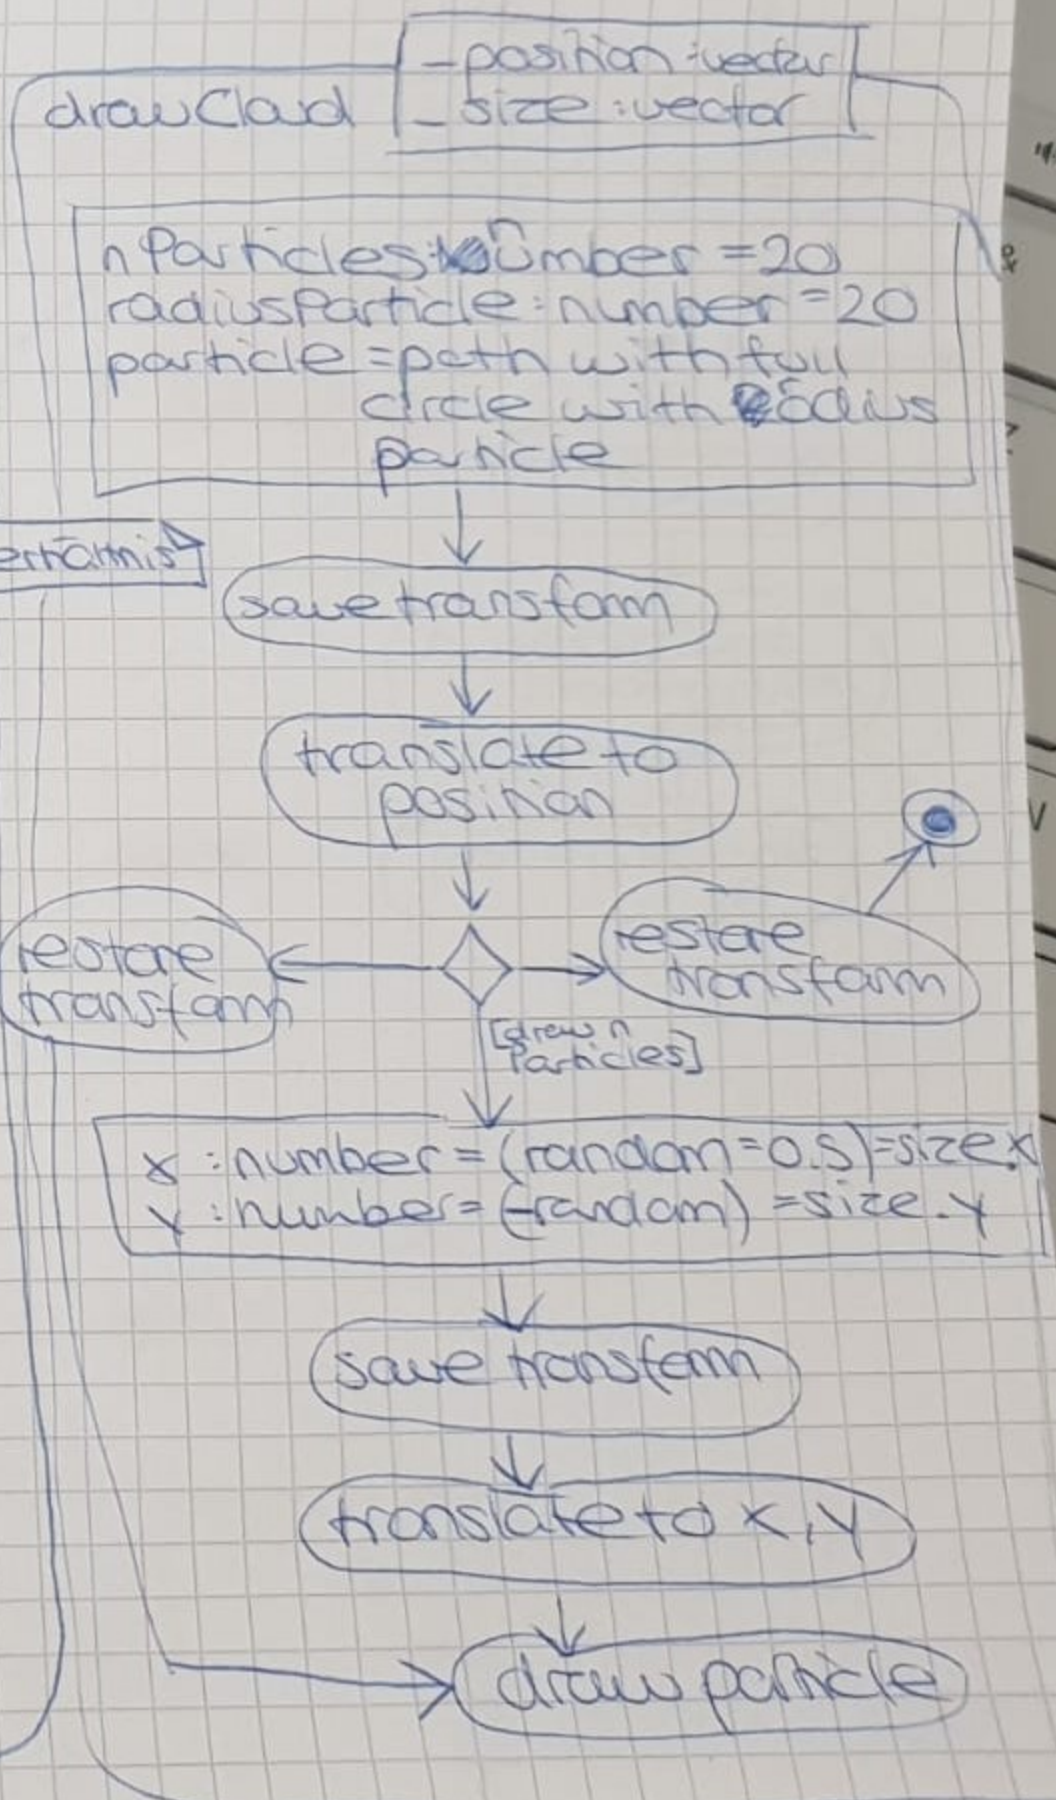 drawCloud
- position : vector
- size : vector
nParticles: number = 20
radiusParticle : number = 20
particle = path with full
circle with radius
particle
save transform
translate to
position
restore
transform
restore
transform
[drew n
Particles]
x : number = (random = 0.5) = size.x
y : number = (-random) = size.y
save transform
translate to x, y
draw particle